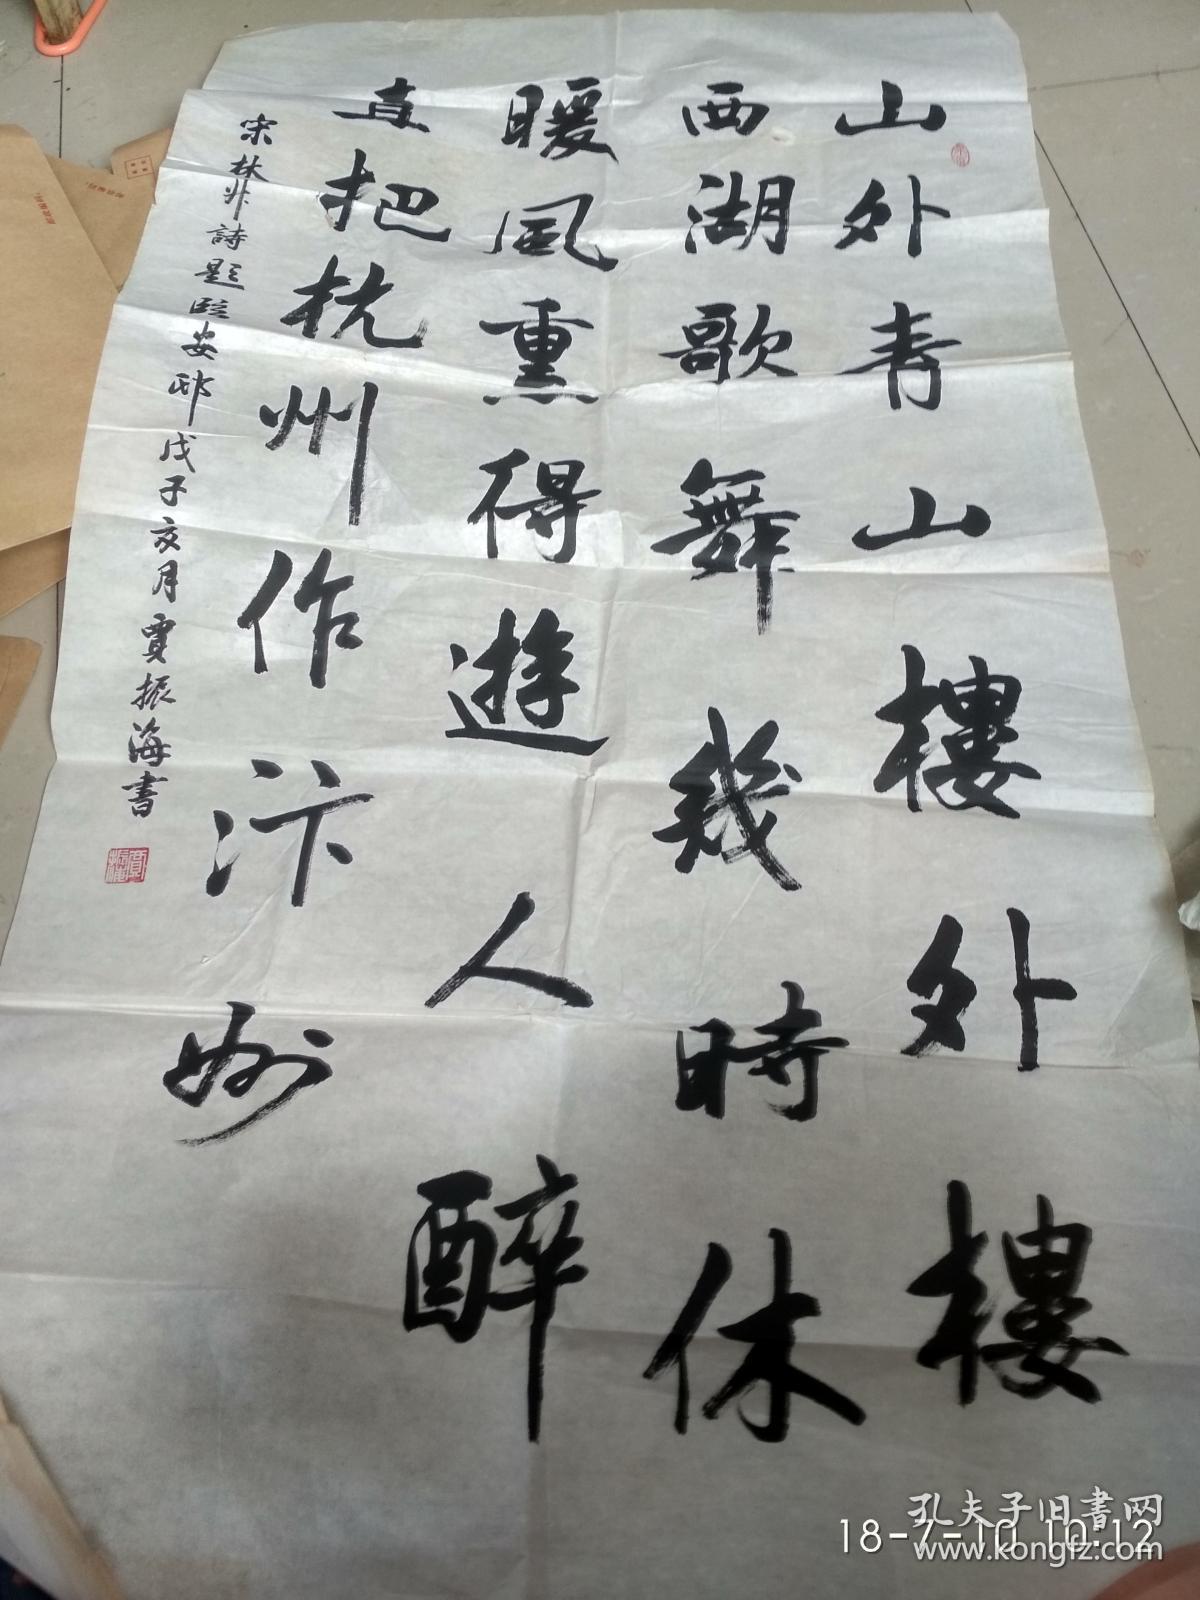 山外青山樓外樓
西湖歌舞幾時休
暖風熏得遊人醉
直把杭州作汴州
宋林升詩題临安邸戊子亥月賈振海書
孔夫子旧書网
18-7-10 10:12
www.kongfz.com